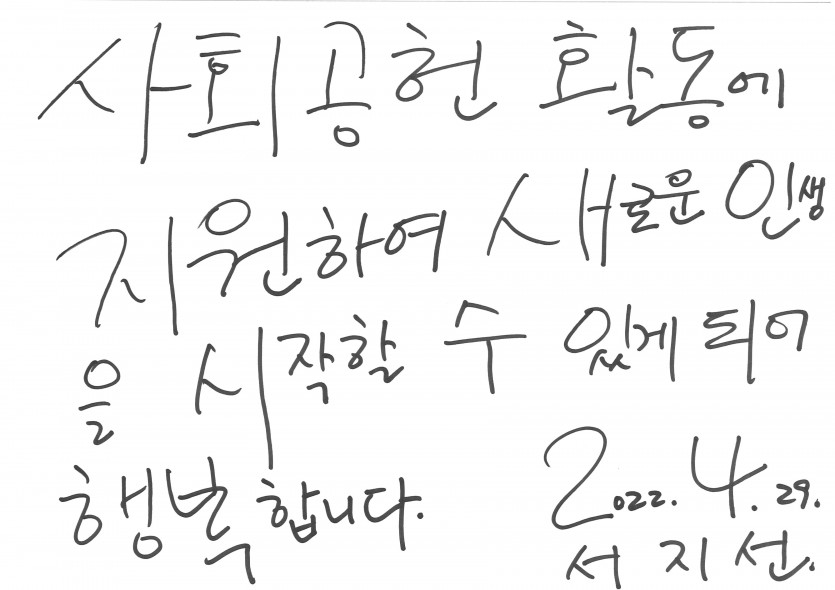 사회공헌 활동에
지원하여 새로운 인생
을 시작할 수 있게 되어
행복합니다.
2022. 4. 29.
서지선.